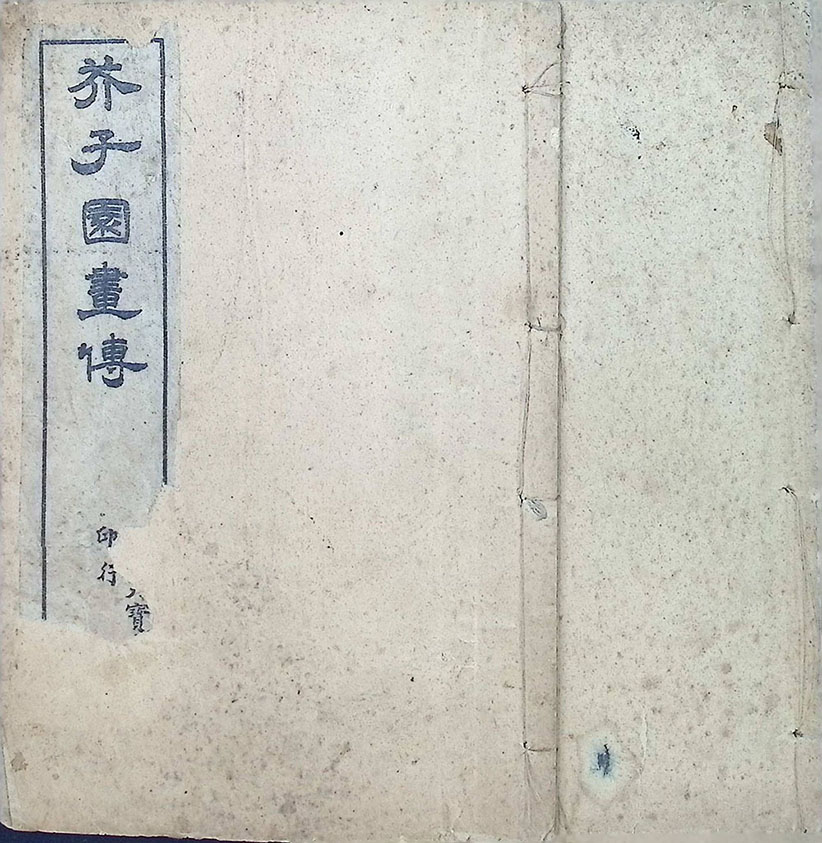 芥子園畫傳
寶
印行